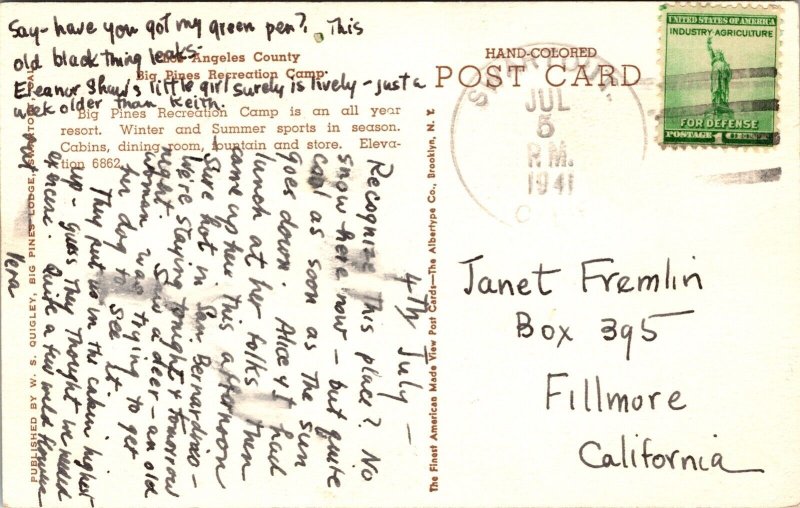 Say- have you got my green pen?. This
old black thing leaks-
Eleanor Shaw's little girl surely is lively - just a
week older than Keith.
Los Angeles County
Big Pines Recreation Camp
Big Pines Recreation Camp is an all year
resort. Winter and Summer sports in season.
Cabins, dining room, fountain and store. Eleva-
tion 6862.
4th July -
Recognize This place? No
snow here now - but quite
cool as soon as The sun
goes down. Alice & I had
lunch at her folks Then
came up here This afternoon
Sure hot in San Bernardino -
We're staying tonight & tomorrow
night. Saw a deer - an old
woman was trying to get
her dog to see it.
They put us in the cabin highest
up - guess They Thought we needed
Quite a few wild flowers
out
Vera
PUBLISHED BY W. S. QUIGLEY, BIG PINES LODGE,
The Finest American Made View Post Cards—The Albertype Co., Brooklyn, N. Y.
HAND-COLORED
POST CARD
JUL
5
P.M.
1941
UNITED STATES OF AMERICA
INDUSTRY-AGRICULTURE
FOR DEFENSE
POSTAGE 1 CENT
Janet Fremlin
Box 395
Fillmore
California